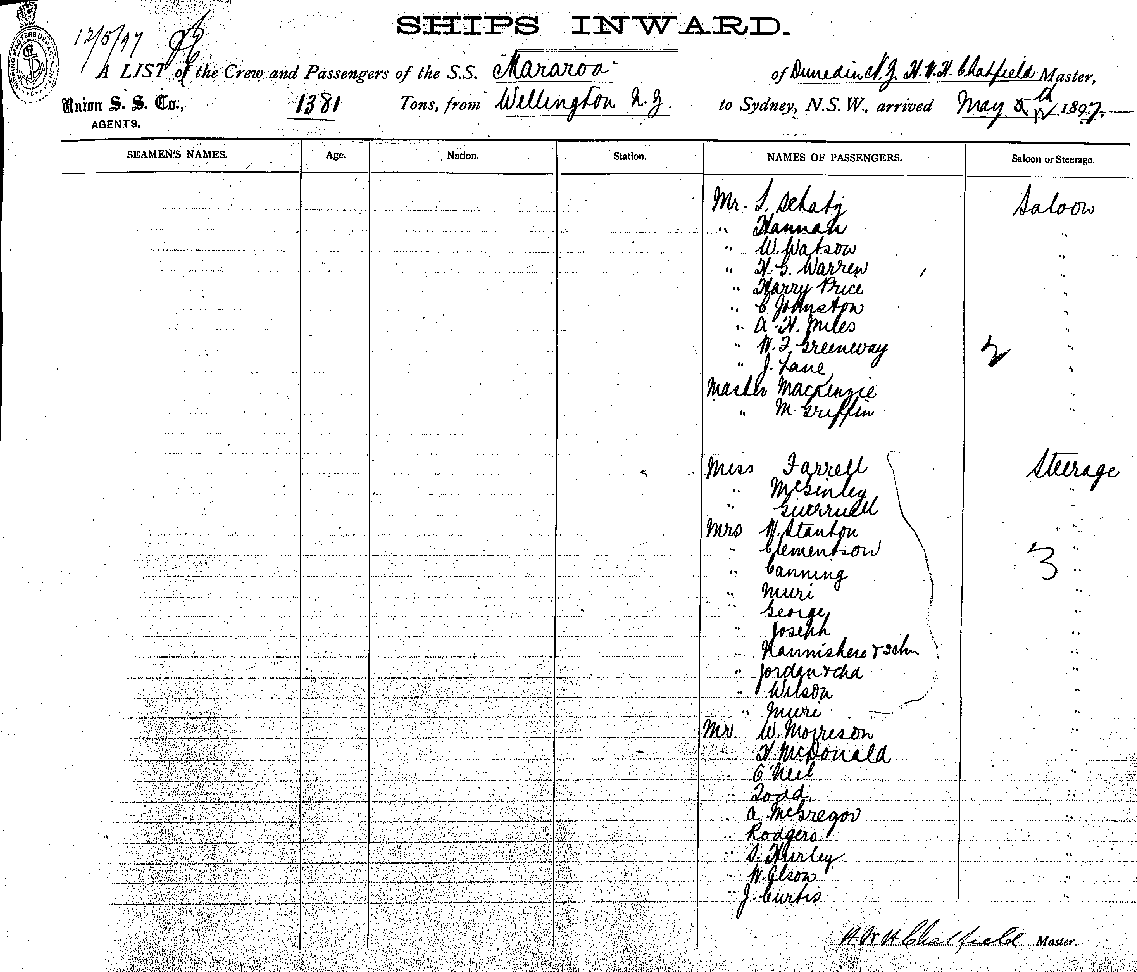 SHIPS INWARD.
12/5/97
A LIST of the Crew and Passengers of the S.S. Mararoa of Dunedin N.Z. H.W.H. Chatfield Master,
Union S. S. Co., 1381 Tons, from Wellington N.Z. to Sydney, N.S.W., arrived May 5th 1897.
AGENTS.
SEAMEN'S NAMES. Age. Nation. Station. NAMES OF PASSENGERS. Saloon or Steerage.
Mr. S. Schatz Saloon
" Hannah "
" W. Watson "
" H. G. Warren "
" Harry Price "
" C. Johnston "
" A. H. Miles "
" W. F. Greenway 2 "
" J. Lane "
Master Mackenzie "
" M. Griffin "
Miss Farrell Steerage
" McGinley "
"
Mrs H. Stanton "
" Clementson "
" Canning 3 "
" Muri "
" George "
" Joseph "
" "
" Jordan & chd "
" Wilson "
" Muri "
Mr. W. Morrison "
" H. McDonald "
" O'Neil "
" Todd "
" A. McGregor "
" Rodgers "
" S. Hurley "
" W. Olson "
" J. Curtis "
H.W.H. Chatfield Master.